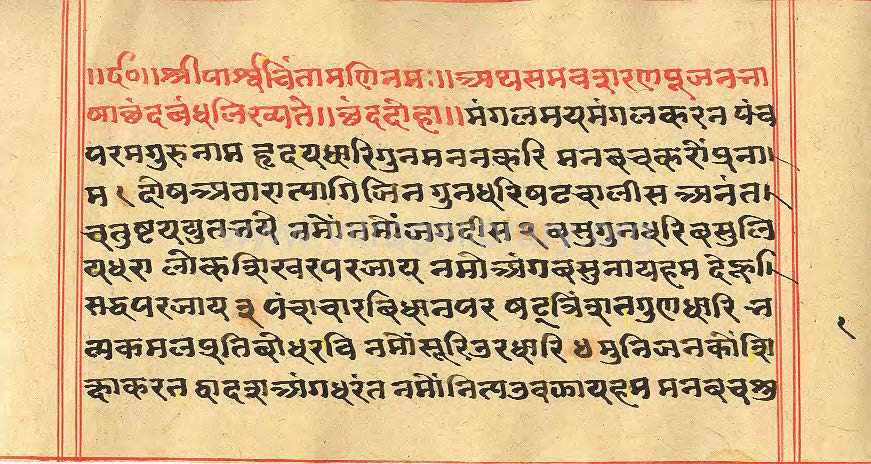 ॥ॐ॥श्रीपार्श्वचिंतामणिनमः॥अथसमवशरणपूजनना
षाछंदबंधलिख्यते॥छंददोहा॥मंगलमयमंगलकरन पंच
परमगुरुनाम हृदयधारिगुनमननकरि मनबचकरौंप्रना
म १ दोषअठारात्यागिजिन गुनधरिषटचालीस अनंत
चतुष्टययुतजये नमौंनमौंजगदीस २ बसुगुनधरिबसुति
यधरा लोकशिखरपरजाय नमोअंगबसुनायहम
सिद्धपरजाय ३ पंचाचारबिधानपर षट्त्रिंशतगुणधारि न
व्यकमलप्रतिबोधरवि नमौंसूरिउरधारि ४ मुनिजनकौंशि
क्षाकरत द्वादशअंगधरंत नमौंनित्यउवझायहम मनबच
१